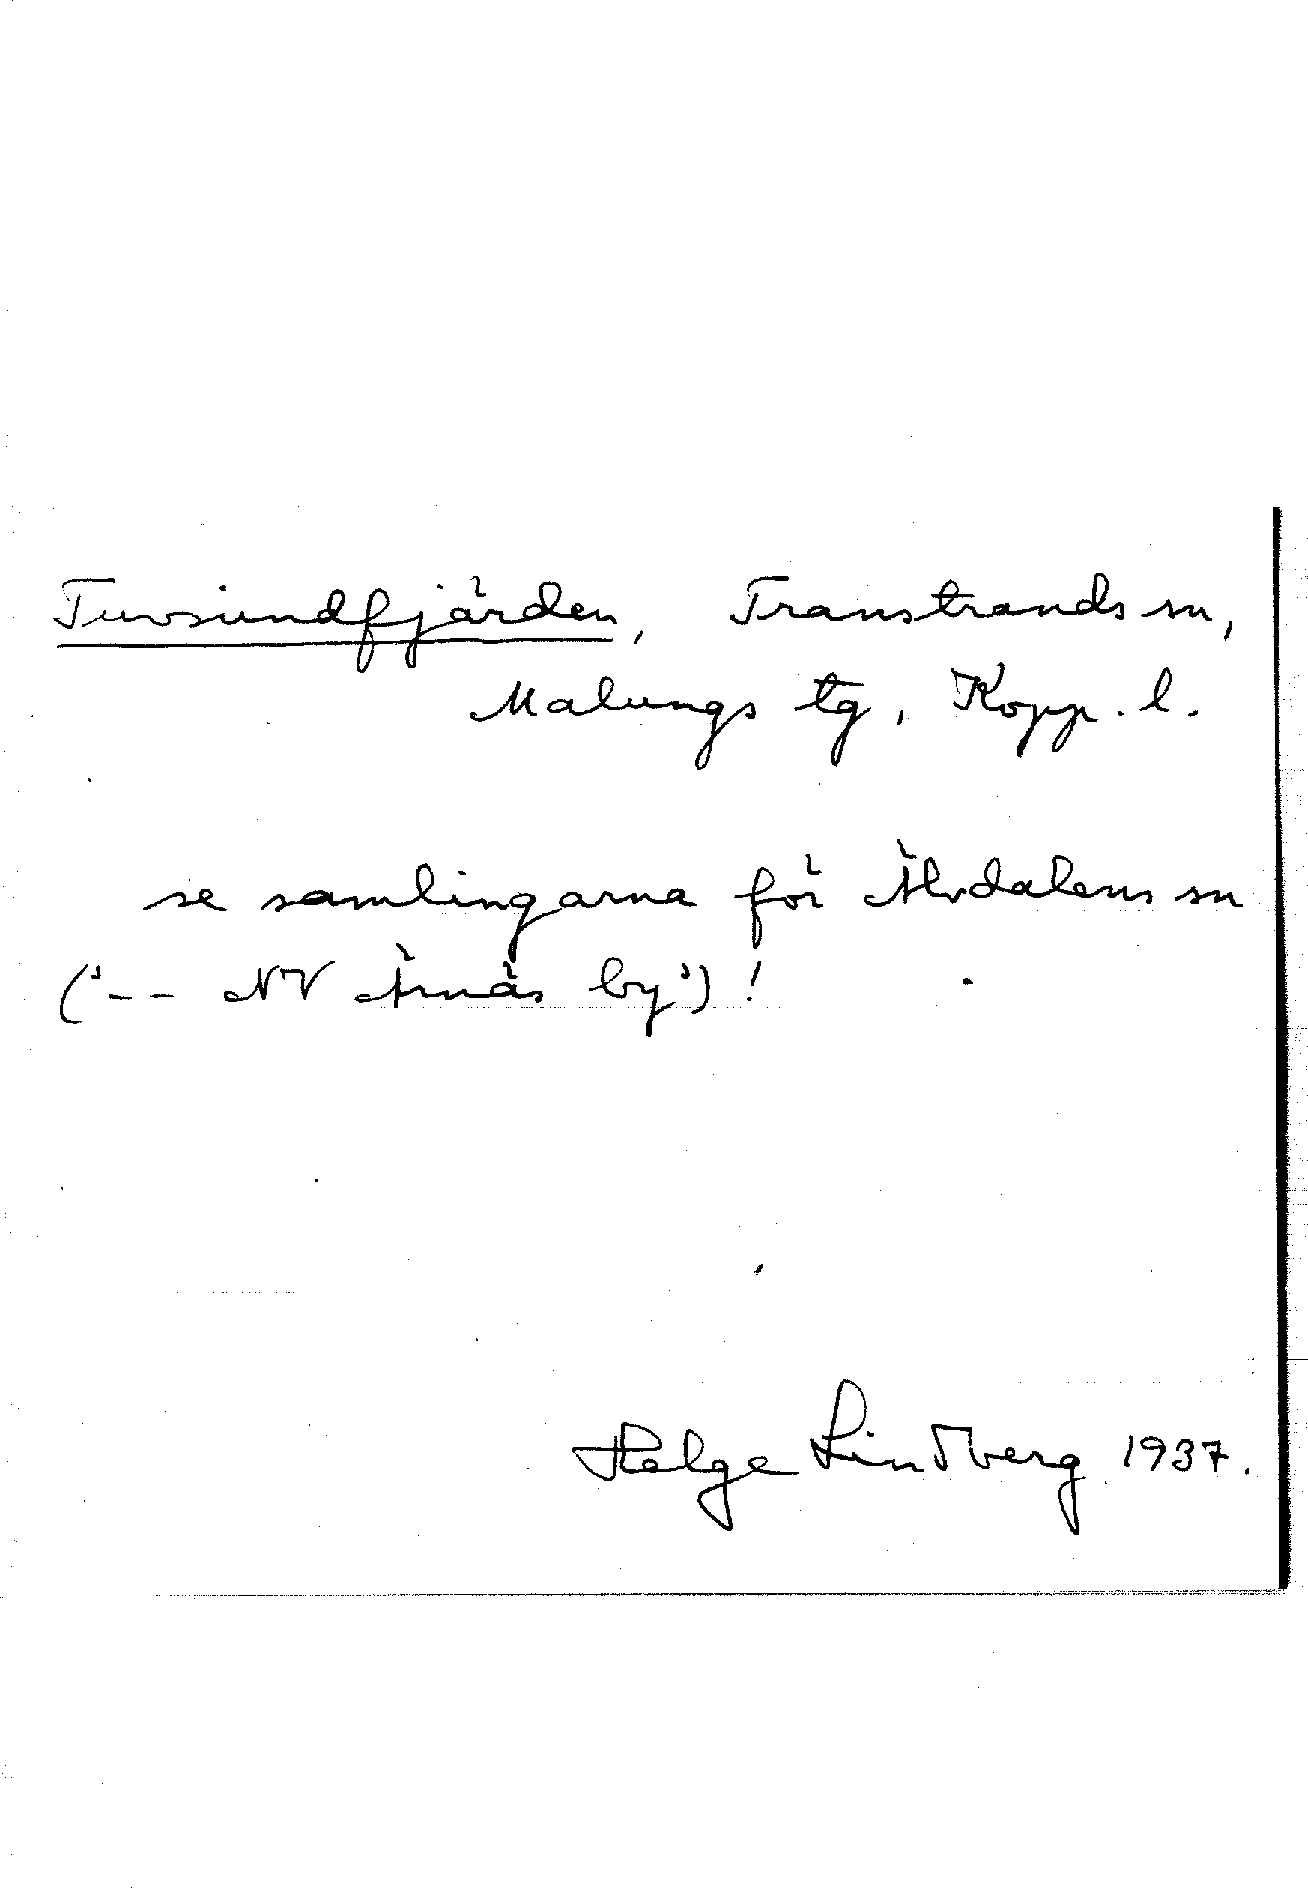 Tuvsundfjärden, Transtrands sn,
Malungs tg, Kopp. l.
se samlingarna för Älvdalens sn
('-- NV Ärnäs by')!
Helge Lindberg 1937.